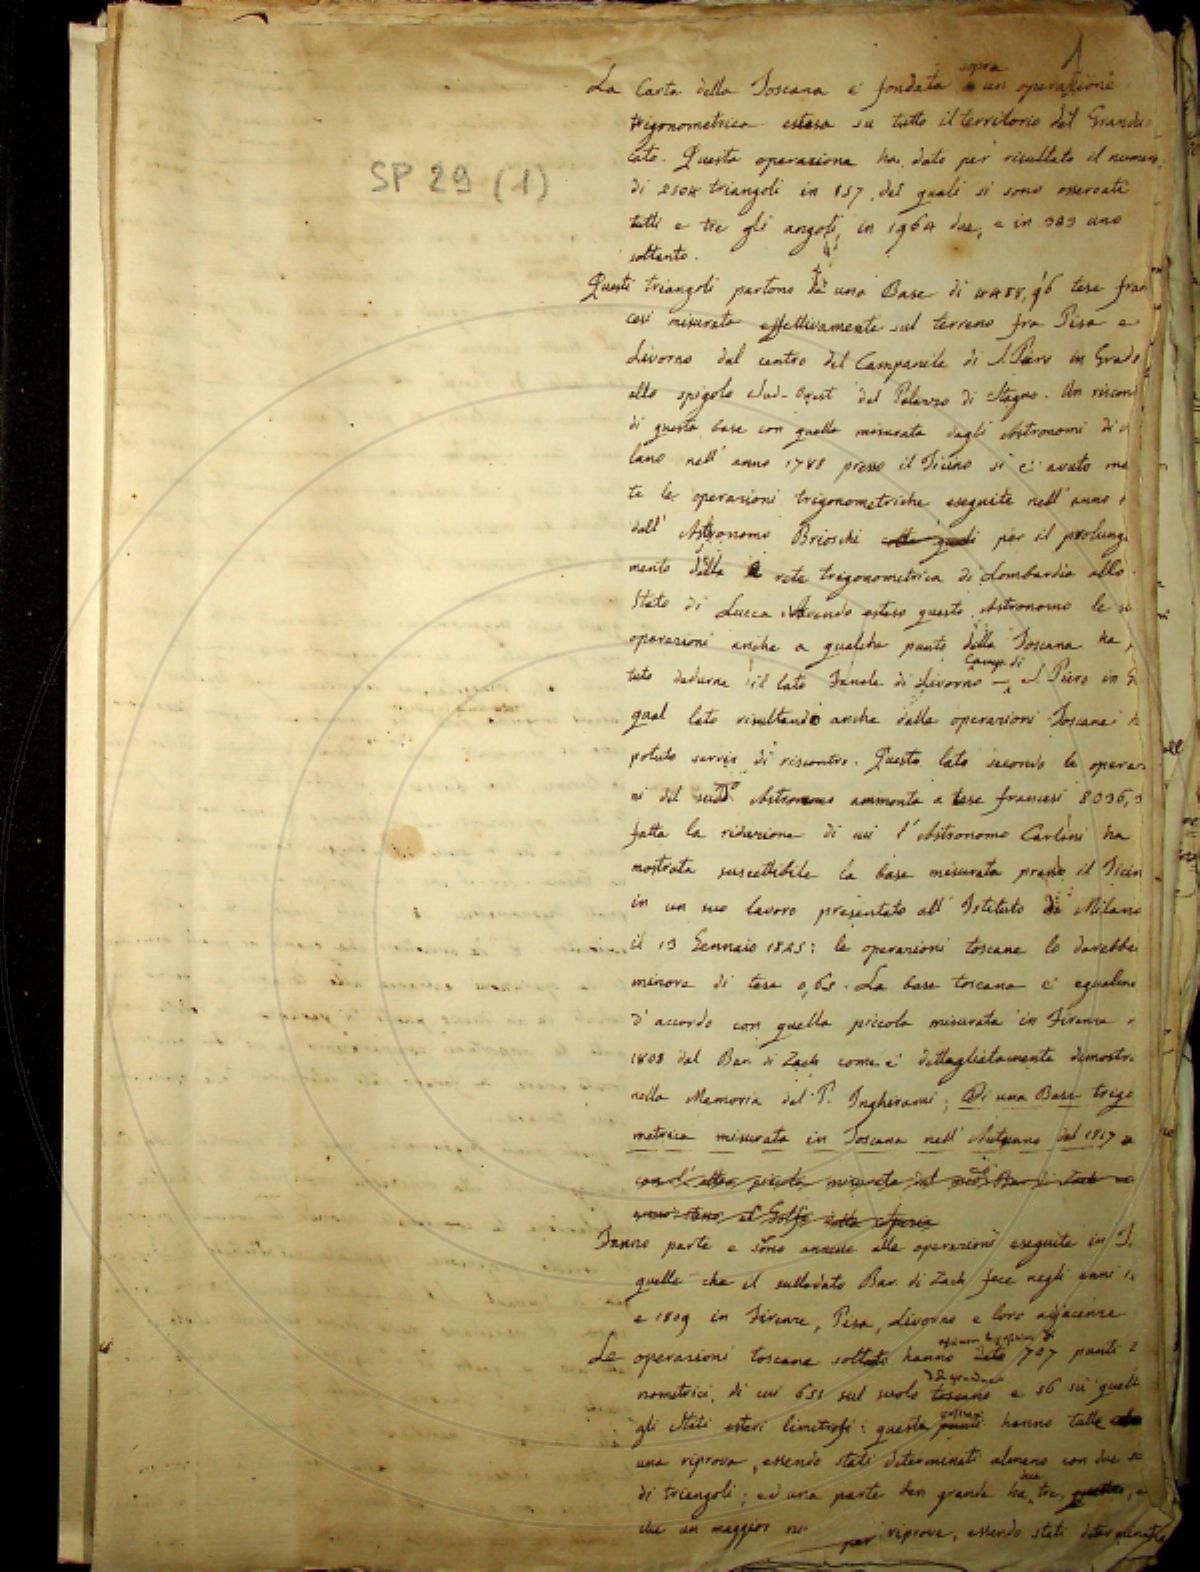 1
SP 29 (1)
sopra
La Carta della Toscana e' fondata un operazione
trigonometrica estesa su tutto il territorio del Grandu
cato. Questa operazione ha dato per risultato il numero
di 2504 triangoli in 857, dei quali si sono osservati
tutti e tre gli angoli, in 1964 due, e in 383 uno
soltanto.
Questi triangoli partono da una Base di 4488,96 tese fran
cesi misurata effettivamente sul terreno fra Pisa e
Livorno dal centro del Campanile di S. Piero in Grado
allo spigolo Sud-Ovest del Palazzo di Stagno. Un riscon
di questa base con quella misurata dagli Astronomi di
lano nell' anno 1788 presso il Ticino si e' avuto
te le operazioni trigonometriche eseguite nell' anno
dall' Astronomo Brioschi colle quali per il prolunga
mento della rete trigonometrica di Lombardia allo
Stato di Lucca. Avendo esteso questo Astronomo le
operazioni anche a qualche punto della Toscana ha
Camp. di
tuto dedurne il lato Fanale di Livorno — S. Piero in
qual lato risultando anche dalle operazioni Toscane
potuto servir di riscontro. Questo lato secondo le operazi
ni del sudd.o Astronomo ammonta a tese francesi 8036,
fatta la riduzione di cui l' Astronomo Carlini ha
mostrata suscettibile la base misurata presso il Ticin
in un suo lavoro presentato all' Istituto di Milano
il 13 Gennaio 1825: le operazioni toscane lo darebbe
minore di tese 0,65. La base toscana e' egualme
d' accordo con quella piccola misurata in Firenze
1808 dal Bar. di Zach come e' dettagliatamente dimostr
nella Memoria del P. Inghirami; Di una Base trigo
metrica misurata in Toscana nell' Autunno del 1817
con l' altra piccola misurata dal Bar. di Zach
al Golfo della Spezia
Fanno parte e sono annesse alle operazioni eseguite in T.
quelle che il sullodato Bar. di Zach fece negli anni
e 1809 in Firenze, Pisa, Livorno e loro adjacenze
Le operazioni toscane soltanto hanno dato 707 punti
nometrici, di cui 651 sul suolo toscano e 56 su quell
gli Stati esteri limitrofi: questa punti hanno tutte
una riprova, essendo stati determinati almeno con due
due
di triangoli; ed una parte ben grande ha, tre, quattro,
che un maggior riprove, essendo stati determinati